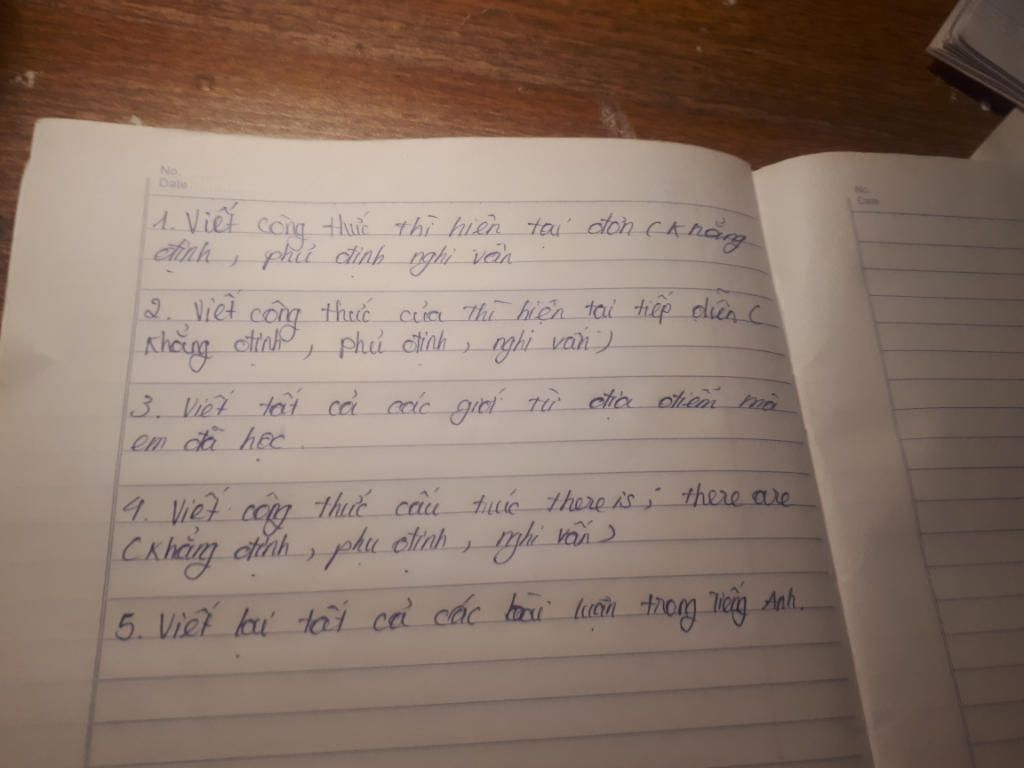 No.
Date
1. Viết công thức thì hiện tại đơn (khẳng
định, phủ định nghi vấn
2. Viết công thức của thì hiện tại tiếp diễn (
khẳng định, phủ định, nghi vấn)
3. Viết tất cả các giới từ địa điểm mà
em đã học.
4. Viết công thức cấu trúc there is; there are
(khẳng định, phụ định, nghi vấn)
5. Viết lại tất cả các bài luận trong Tiếng Anh.
No.
Date